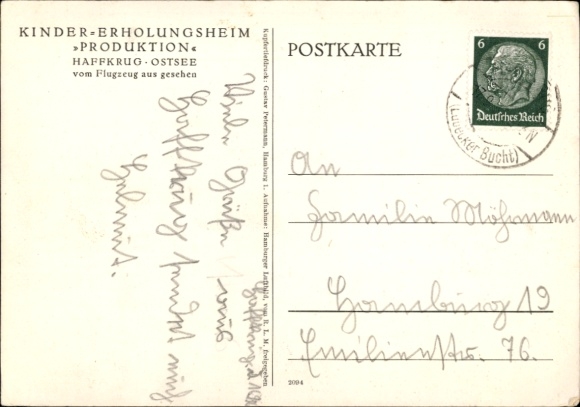 KINDER=ERHOLUNGSHEIM
»PRODUKTION«
HAFFKRUG · OSTSEE
vom Flugzeug aus gesehen
Viele Grüße
Haffkrug sendet
Helmut.
Kupfertiefdruck: Gustav Petermann, Hamburg 1. Aufnahme: Hamburger Luftbild, vom R. L. M. freigegeben
POSTKARTE
6 6
Deutsches Reich
(Lübecker Bucht)
An
Familie Möhrmann
Hamburg 19
Emilienstr. 76.
2094